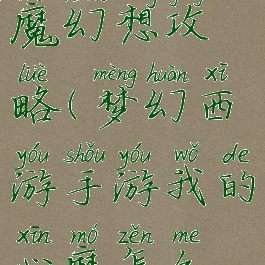 魔幻想攻
lüè mèng huàn xī
略(梦幻西
yóu shǒu yóu wǒ de
游手游我的
xīn mó zěn me
心魔怎么